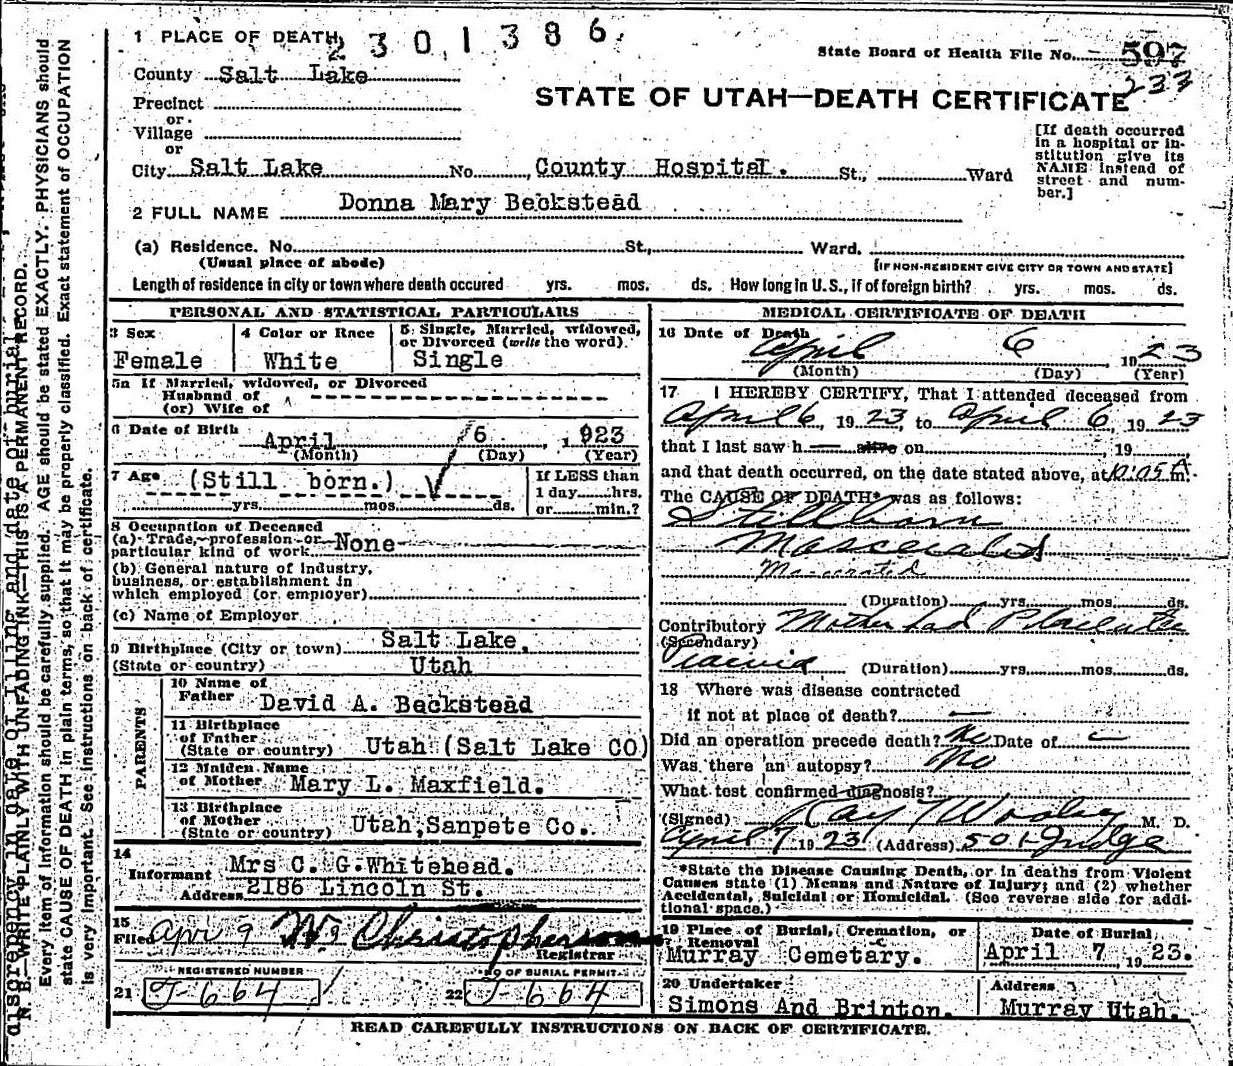 1 PLACE OF DEATH 2301386
State Board of Health File No. 597
233
County Salt Lake
STATE OF UTAH—DEATH CERTIFICATE
Precinct
or
Village
or
City Salt Lake No. County Hospital. St., Ward
[If death occurred
in a hospital or in-
stitution give its
NAME instead of
street and num-
ber.]
2 FULL NAME Donna Mary Beckstead
(a) Residence. No. St., Ward.
(Usual place of abode) [IF NON-RESIDENT GIVE CITY OR TOWN AND STATE]
Length of residence in city or town where death occured yrs. mos. ds. How long in U.S., if of foreign birth? yrs. mos. ds.
PERSONAL AND STATISTICAL PARTICULARS
3 Sex Female
4 Color or Race White
5 Single, Married, widowed,
or Divorced (write the word). Single
5a If Married, widowed, or Divorced
Husband of
(or) Wife of
6 Date of Birth April 6, 1923
(Month) (Day) (Year)
7 Age (Still born.)
yrs. mos. ds.
If LESS than
1 day hrs.
or min.?
8 Occupation of Deceased
(a) Trade, profession or
particular kind of work None
(b) General nature of industry,
business, or establishment in
which employed (or employer)
(c) Name of Employer
9 Birthplace (City or town) Salt Lake,
(State or country) Utah
PARENTS
10 Name of
Father David A. Beckstead
11 Birthplace
of Father
(State or country) Utah (Salt Lake CO)
12 Maiden Name
of Mother Mary L. Maxfield.
13 Birthplace
of Mother
(State or country) Utah, Sanpete Co.
14
Informant Mrs C. G. Whitehead.
Address 2186 Lincoln St.
15
Filed Apr 9 Christopherson
Registrar
REGISTERED NUMBER NO OF BURIAL PERMIT
21 J-664 22 J-664
MEDICAL CERTIFICATE OF DEATH
16 Date of Death
April 6, 1923
(Month) (Day) (Year)
17 I HEREBY CERTIFY, That I attended deceased from
April 6, 1923, to April 6, 1923
that I last saw h alive on , 19
and that death occurred, on the date stated above, at 10:05 A m.
The CAUSE OF DEATH* was as follows:
Stillborn
Macerated
Macerated
(Duration) yrs. mos. ds.
Contributory Mother had Placenta
(Secondary)
Praevia (Duration) yrs. mos. ds.
18 Where was disease contracted
if not at place of death?
Did an operation precede death? No Date of
Was there an autopsy? No
What test confirmed diagnosis?
(Signed) Ray T Woolsey M. D.
April 7 1923 (Address) 501 Judge
*State the Disease Causing Death, or in deaths from Violent
Causes state (1) Means and Nature of Injury; and (2) whether
Accidental, Suicidal or Homicidal. (See reverse side for addi-
tional space.)
19 Place of Burial, Cremation, or
Removal
Murray Cemetary.
Date of Burial
April 7, 1923.
20 Undertaker
Simons And Brinton.
Address
Murray Utah.
READ CAREFULLY INSTRUCTIONS ON BACK OF CERTIFICATE.
discrepency in date of filing and date of burial
N. B. WRITE PLAINLY WITH UNFADING INK—THIS IS A PERMANENT RECORD.
Every item of information should be carefully supplied. AGE should be stated EXACTLY. PHYSICIANS should
state CAUSE OF DEATH in plain terms, so that it may be properly classified. Exact statement of OCCUPATION
is very important. See instructions on back of certificate.